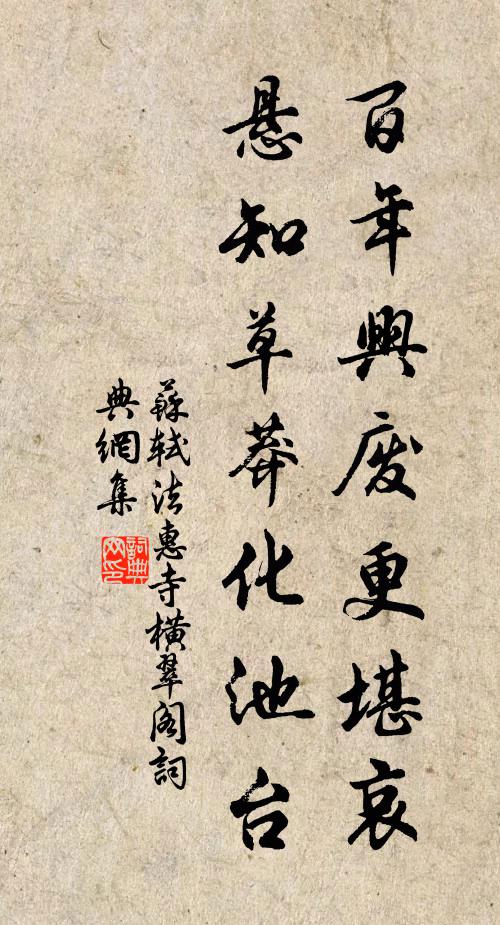 百年興廢更堪哀
悬知草莽化池台
蘇軾法惠寺橫翠阁詞
典網集
詞典
网印